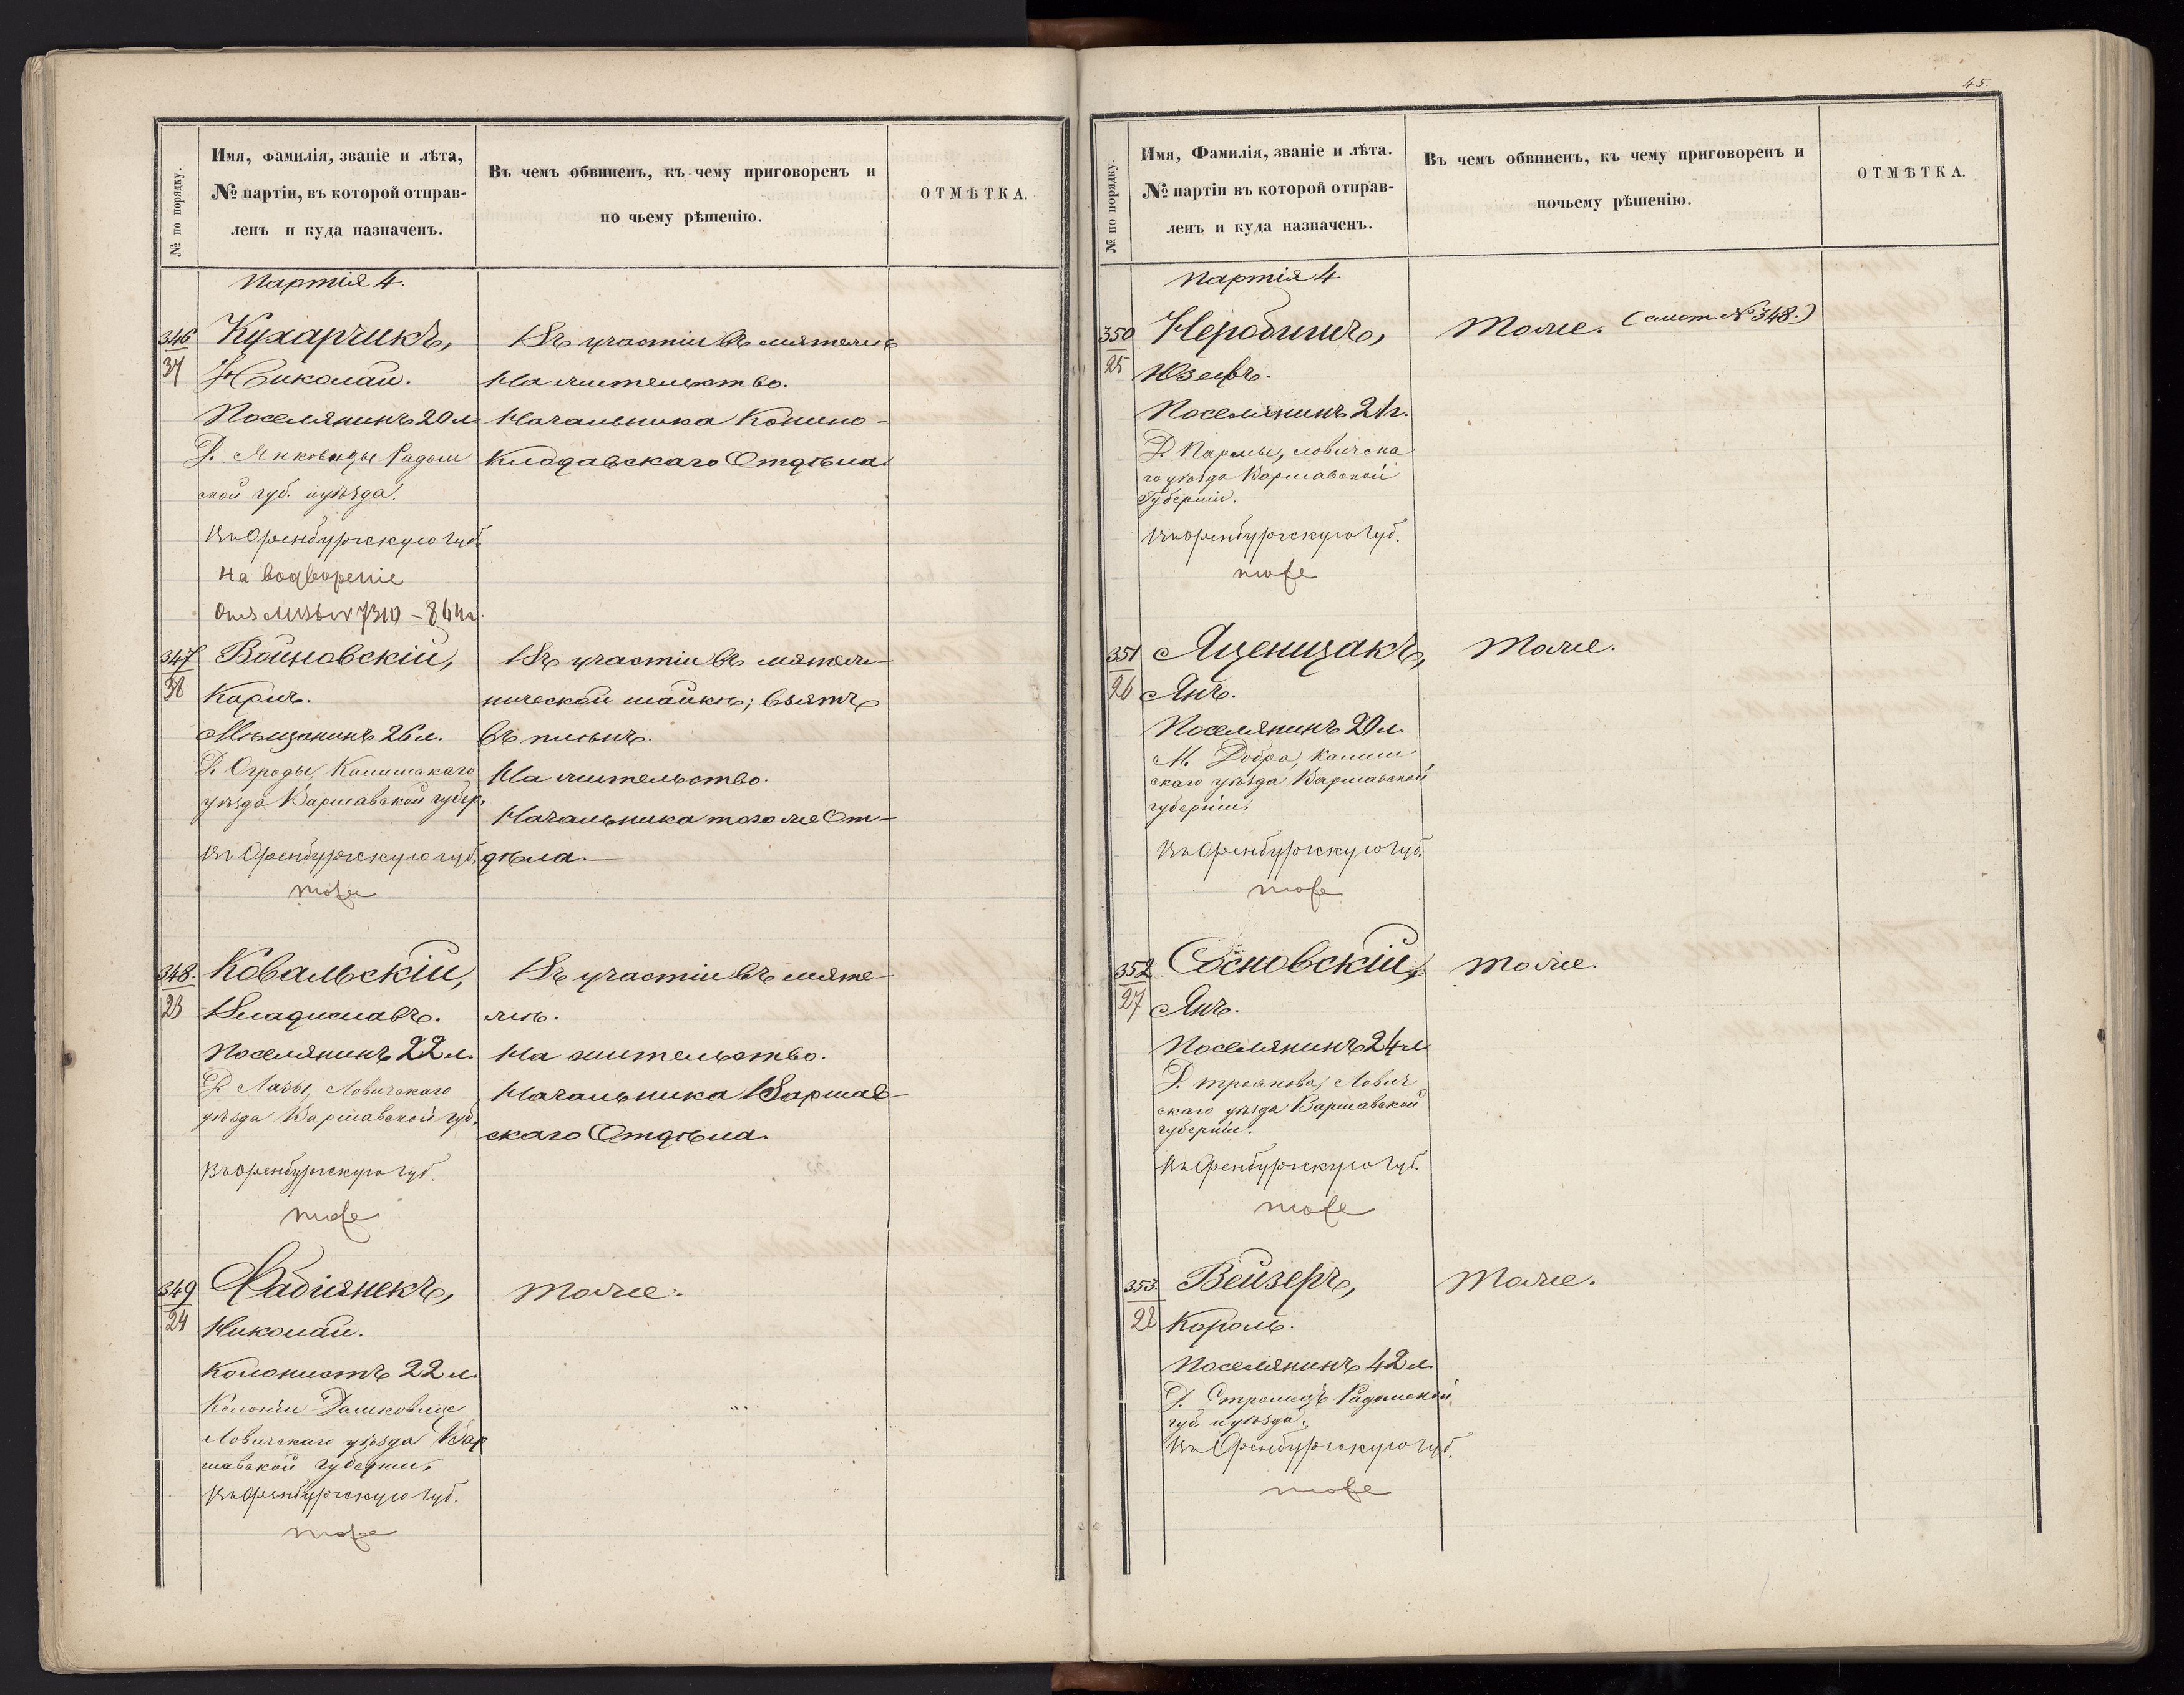 № по порядку.
Имя, Фамилія, званіе и лѣта,
№ партіи, въ которой отправ-
ленъ и куда назначенъ.
Въ чемъ обвиненъ, къ чему приговоренъ и
по чьему рѣшенію.
ОТМѢТКА.
Партія 4.
346
37
Кухарчикъ,
Николай.
Поселянинъ 20 л.
Д. Янковицы Радом
ской губ. и уѣзда.
Въ Оренбургскую губ.
На водворение
7310 - 864 г.
Въ участіи въ мятежѣ
На жительство.
Начальника Конино-
Клодавскаго Отдѣла.
347
38
Войновскій,
Карлъ.
Мѣщанинъ 26 л.
Д. Огроды, Калишскаго
уѣзда Варшавской губер.
Въ Оренбургскую губ.
тоже
Въ участіи въ мятеж-
нической шайкѣ; взятъ
въ плѣнъ.
На жительство.
Начальника того же От-
дѣла.—
348.
23
Ковальскій,
Владиславъ.
Поселянинъ 22 л.
Д. Лазы, Ловичскаго
уѣзда Варшавской губ.
Въ Оренбургскую губ.
тоже
Въ участіи въ мяте-
жѣ.
На жительство.
Начальника Варшав-
скаго Отдѣла.
349
24
Фабіянекъ,
Николай.
Колонистъ 22 л.
Колоніи Даликовице
Ловичскаго уѣзда Вар
шавской губерніи,
Въ Оренбургскую губ.
тоже
Тоже.
45.
№ по порядку.
Имя, Фамилія, званіе и лѣта.
№ партіи въ которой отправ-
ленъ и куда назначенъ.
Въ чемъ обвиненъ, къ чему приговоренъ и
почьему рѣшенію.
ОТМѢТКА.
Партія 4
350
25
Неробишъ,
Юзефъ.
Поселянинъ 21 г.
Д. Пармы, Ловичска
го уѣзда Варшавской
Губерніи.
Въ Оренбургскую губ.
тоже
Тоже. (смот. № 348.)
351
26
Яценцакъ,
Янъ.
Поселянинъ 20 л.
М. Добра, Калиш
скаго уѣзда Варшавской
губерніи.
Въ Оренбургскую губ.
тоже
Тоже.
352
27
Сосновскій,
Янъ.
Поселянинъ 24 л.
Д. Троянова, Лович
скаго уѣзда Варшавской
губерніи.
Въ Оренбургскую губ.
тоже
Тоже.
353.
28
Вейзеръ,
Кароль.
Поселянинъ 42 л.
Д. Стромецъ Радомской
губ. и уѣзда.
Въ Оренбургскую губ.
тоже
Тоже.